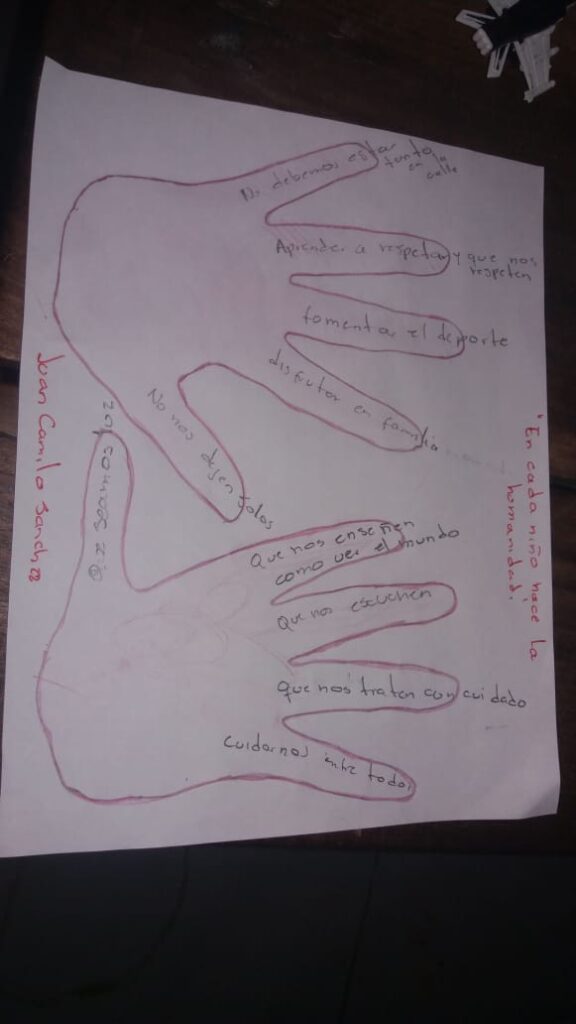 "En cada niño nace la
humanidad.
No debemos estar
tanto
en la
calle
Aprender a respetar y que nos
respeten
fomentar el deporte
disfrutar en familia
No nos dejen solos
somos luz
Que nos enseñen
como ver el mundo
que nos escuchen
que nos traten con cuidado
cuidarnos entre todos
Juan Camilo Sanchez